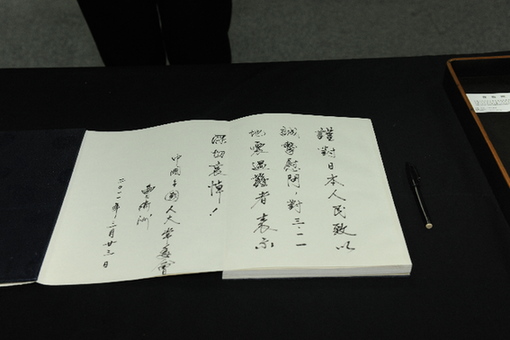 謹對日本人民致以
誠摯慰問，對三·一一
地震遇難者表示
深切哀悼！
中國全國人大常委會
曹衛洲
二〇一一年三月廿三日